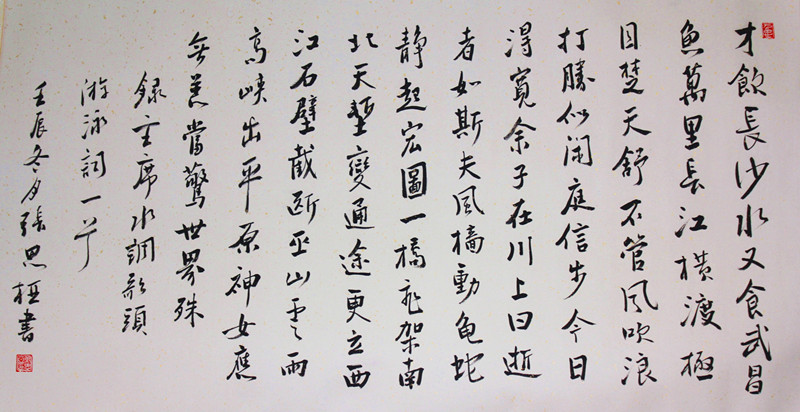 才飲長沙水又食武昌
魚萬里長江橫渡極
目楚天舒不管风吹浪
打勝似闲庭信步今日
得寬余子在川上曰逝
者如斯夫風檣動龜蛇
静起宏圖一橋飛架南
北天塹變通途更立西
江石壁截斷巫山雲雨
高峡出平原神女應
無恙當驚世界殊
録主席水調歌頭
游泳詞一首
壬辰冬月張思書